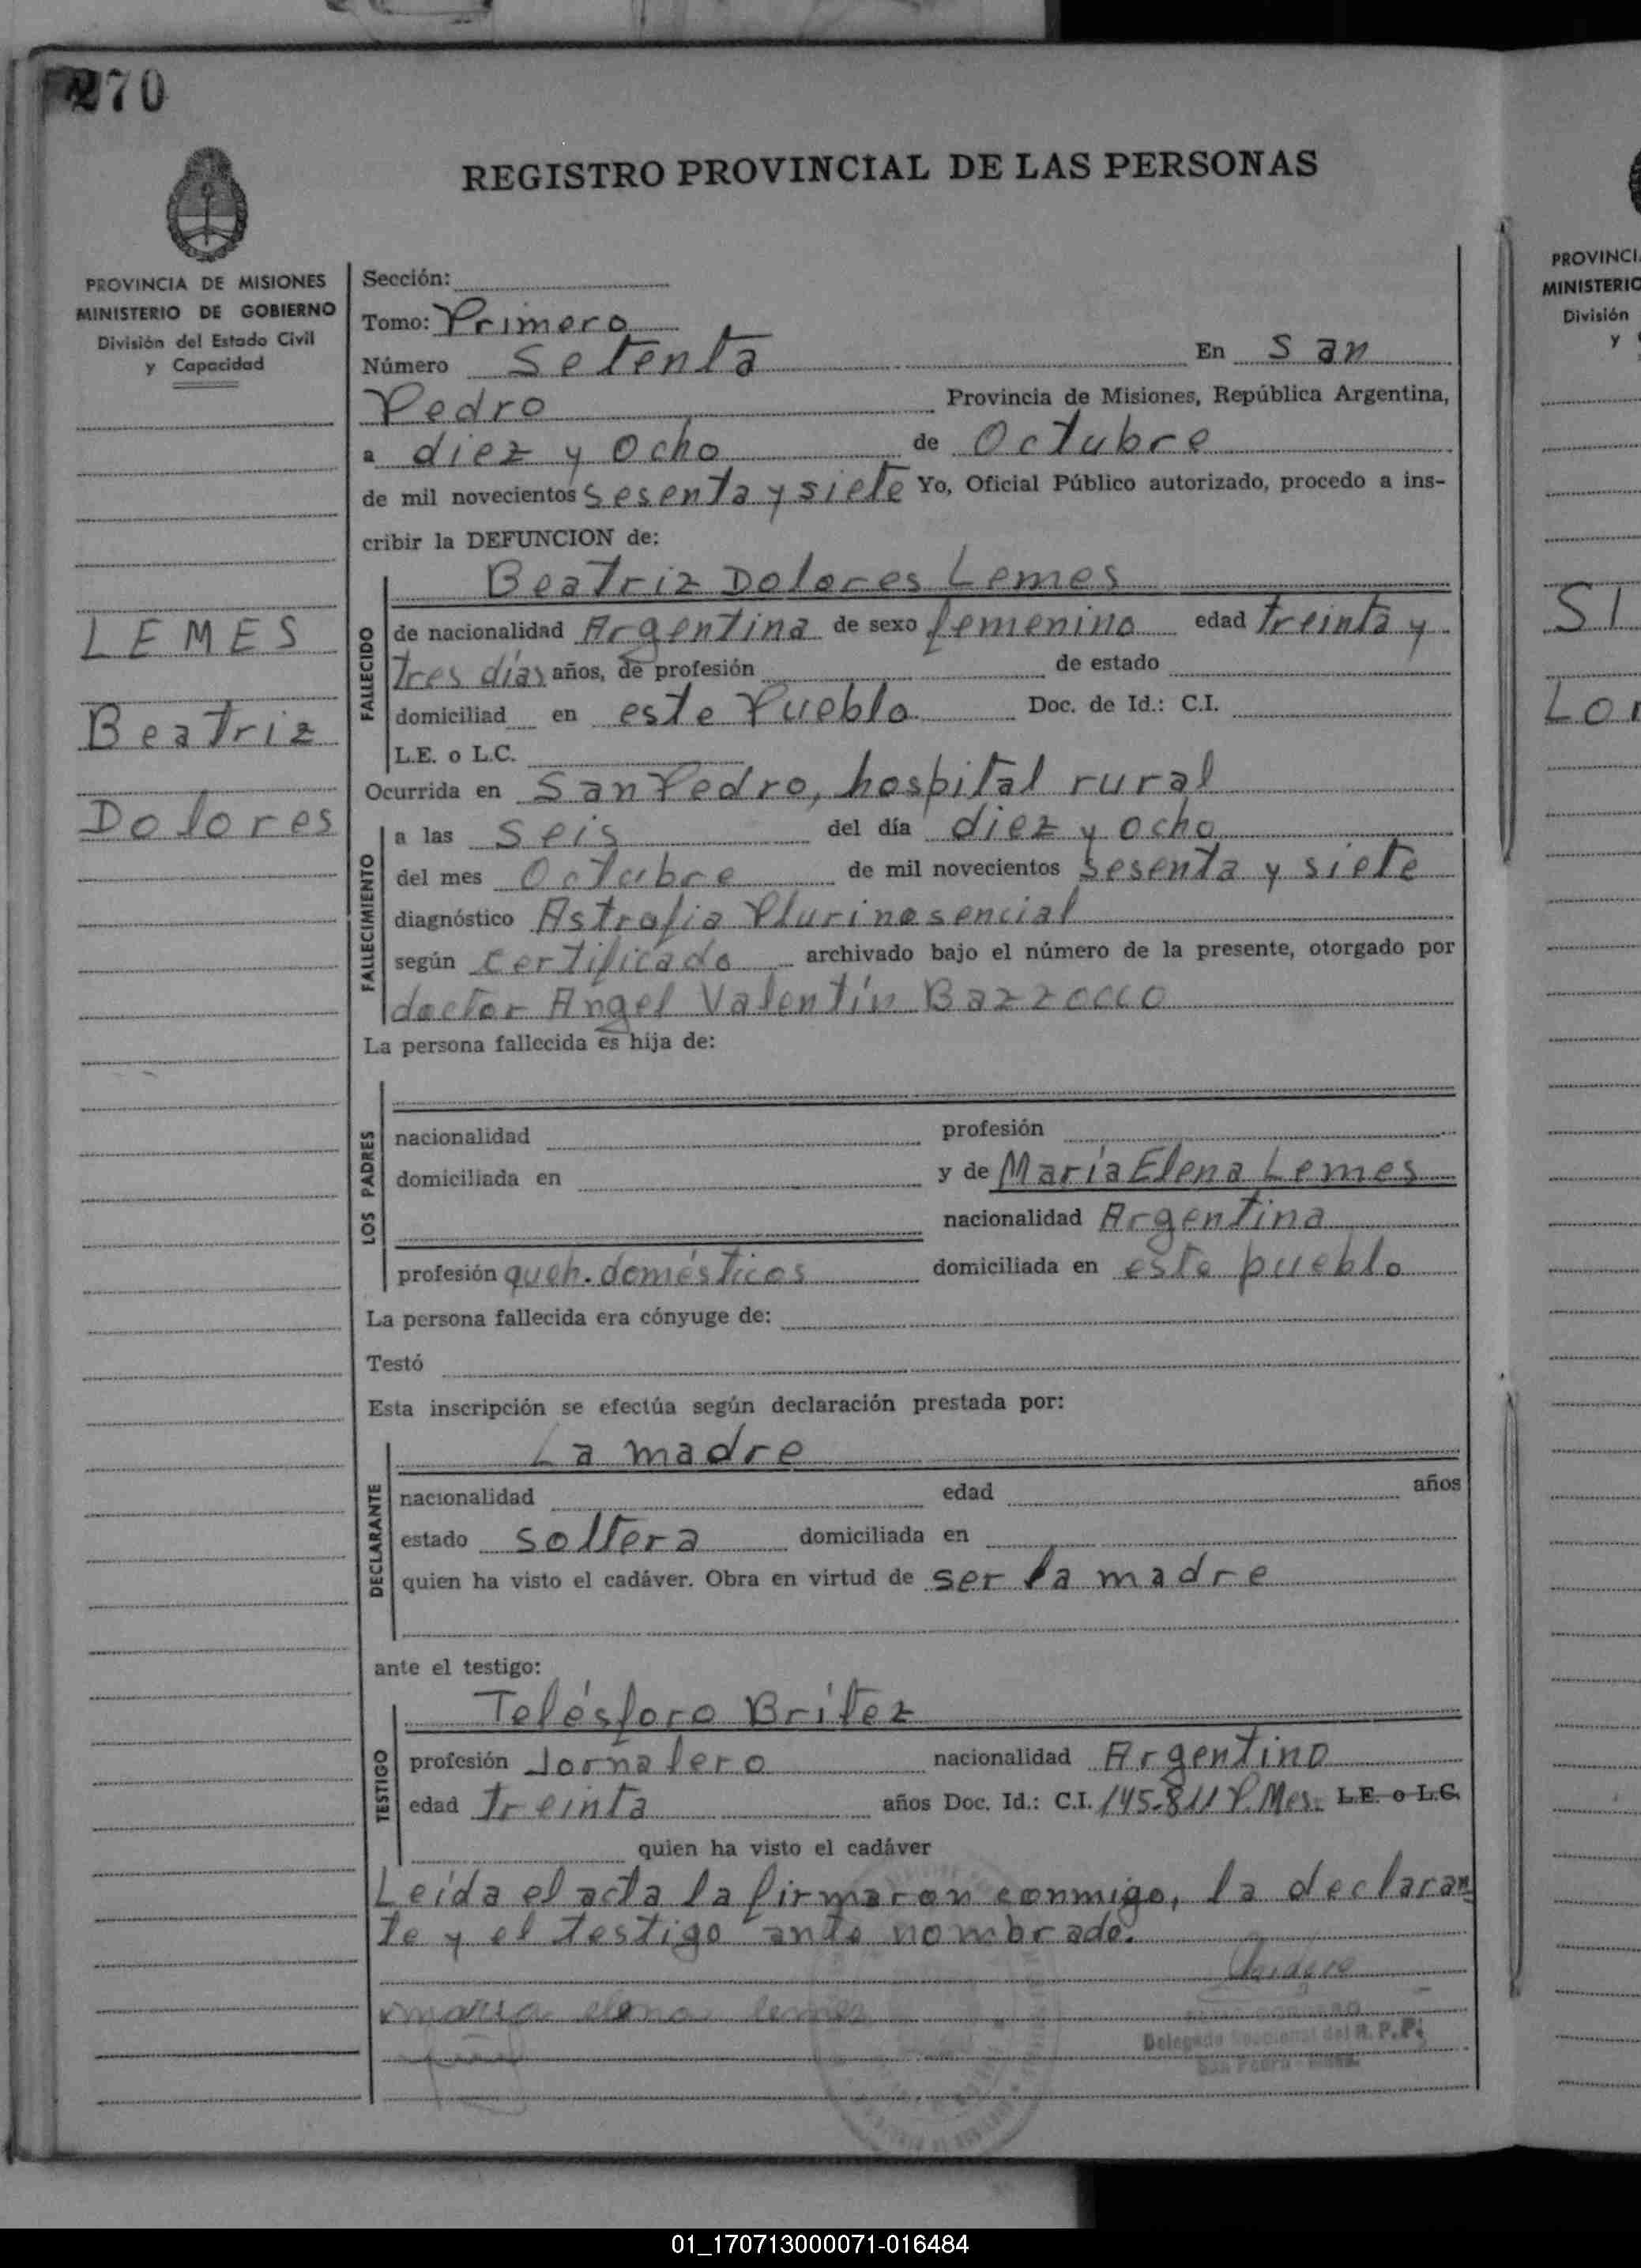 270
REGISTRO PROVINCIAL DE LAS PERSONAS
PROVINCIA DE MISIONES
MINISTERIO DE GOBIERNO
División del Estado Civil
y Capacidad
LEMES
Beatriz
Dolores
Sección:
Tomo: Primero
Número Setenta En San
Pedro Provincia de Misiones, República Argentina,
a diez y ocho de Octubre
de mil novecientos sesenta y siete Yo, Oficial Público autorizado, procedo a ins-
cribir la DEFUNCION de:
Beatriz Dolores Lemes
FALLECIDO
de nacionalidad Argentina de sexo femenino edad treinta y
tres días años, de profesión de estado
domiciliad en este Pueblo Doc. de Id.: C.I.
L.E. o L.C.
Ocurrida en San Pedro, hospital rural
FALLECIMIENTO
a las seis del día diez y ocho
del mes Octubre de mil novecientos sesenta y siete
diagnóstico Astrofia Plurinosencial
según certificado archivado bajo el número de la presente, otorgado por
doctor Angel Valentín Bazzocco
La persona fallecida es hija de:
LOS PADRES
nacionalidad profesión
domiciliada en y de María Elena Lemes
nacionalidad Argentina
profesión queh. domésticos domiciliada en este pueblo
La persona fallecida era cónyuge de:
Testó
Esta inscripción se efectúa según declaración prestada por:
La madre
DECLARANTE
nacionalidad edad años
estado soltera domiciliada en
quien ha visto el cadáver. Obra en virtud de ser la madre
ante el testigo:
Telésforo Brítez
TESTIGO
profesión Jornalero nacionalidad Argentino
edad treinta años Doc. Id.: C.I. 145.811 P. Mes. L.E. o L.C.
quien ha visto el cadáver
Leída el acta la firmaron conmigo, la declaran
te y el testigo ante nombrado.
maria elena lemes
Delegado Seccional del R. P. P.
San Pedro - Mnes.
PROVINCI
MINISTERIO
División
y
SI
Lor
01_170713000071-016484